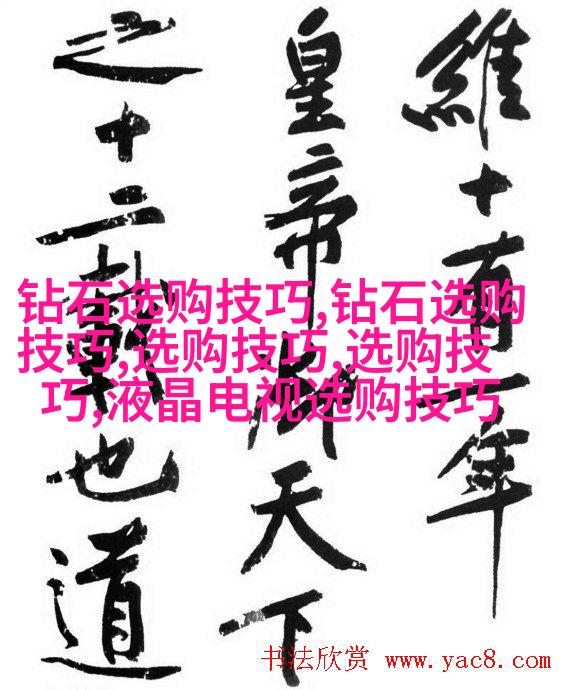 維十有一年
皇帝御天下
之十二載也道
钻石选购技巧,钻石选购
技巧,选购技巧,选购技
巧,液晶电视选购技巧
书法欣赏 www.yac8.com